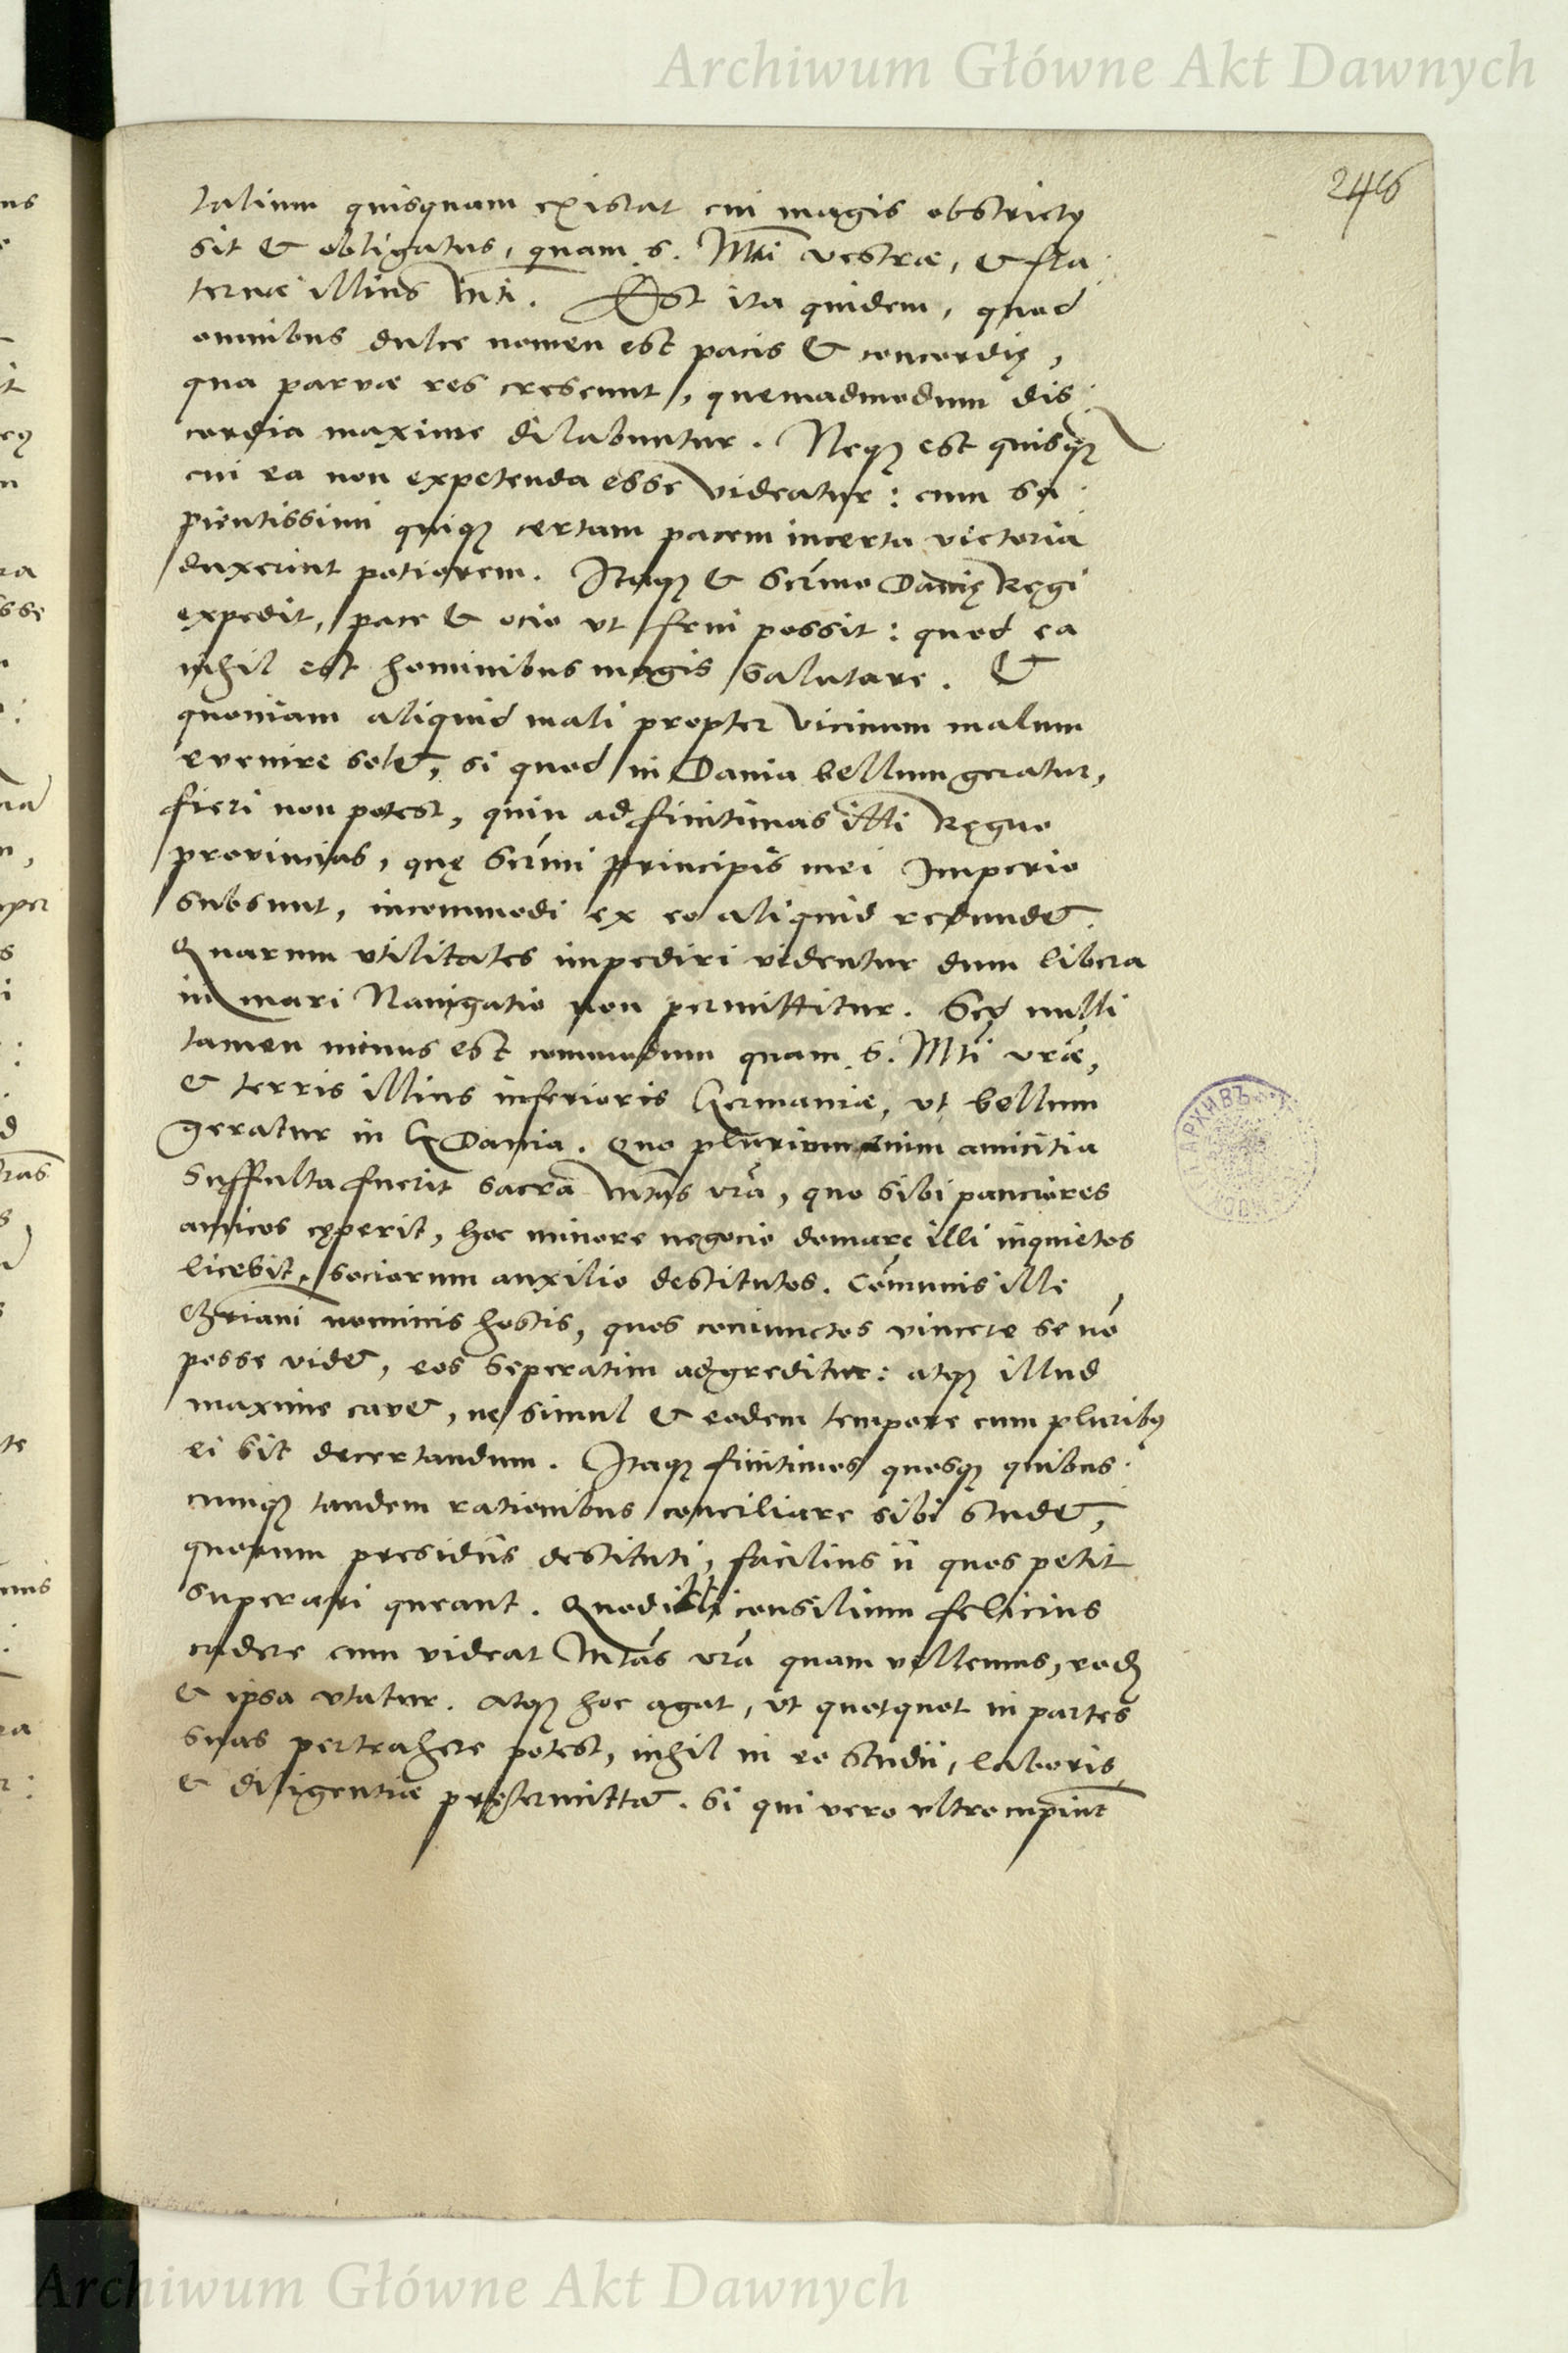 Archiwum Główne Akt Dawnych
246
talium quisquam existat cui magis obstrictꝯ
sit & obligatus, quam S. Mti vestræ, & fra
ternæ illius Mti. Est ita quidem, quod
omnibus dulce nomen est pacis & concordię,
qua parvæ res crescunt, quemadmodum dis
cordia maxime dilabuntur. Neqꝫ est quisqꝫ
cui ea non expetenda esse videatur: cum sa
pientissimi quiqꝫ certam pacem incerta victoria
duxerint potiorem. Itaqꝫ & Sermo Danię Regi
expedit, pace & ocio ut frui possit: quod ea
nihil est hominibus magis salutare. &
quoniam aliquid mali propter vicinum malum
evenire solet, si quod in Dania bellum geratur,
fieri non potest, quin ad finitimas illi Regno
provincias, quę Sermi principis mei Imperio
subsunt, incommodi ex eo aliquid redundet.
Quarum utilitates impediri videntur dum libera
in mari Navigatio non permittitur. Sed nulli
tamen minus est commodum quam S. Mti vræ,
& terris illius inferioris Germaniæ, ut bellum
geratur in Dania. Quo plurium enim amicitia
suffulta fuerit sacra Mtas vra, quo sibi panciores
amicos cęperit, hoc minore negocio domare illi inquietos
licebit, sociorum auxilio destitutos. Comunis ille
Chriani nominis hostis, quos coniunctos vincere se nō
posse videt, eos seperatim adgreditur: atqꝫ illud
maxime cavet, ne simul & eodem tempore cum pluribꝯ
ei sit decertandum. Itaqꝫ finitimos quosqꝫ quibus
cunqꝫ tandem rationibus conciliare sibi studet,
quorum presidiis destituti, facilius ii quos petit
superari queant. Quod illi consilium felicius
cadere cum videat Mtas vra quam vellemus, eodē
& ipsa utatur. Atqꝫ hoc agat, ut quotquot in partes
suas pertrahere potest, nihil in eo studii, laboris
& diligentiæ prętermittat. Si qui vero ultro cupiūt
Archiwum Główne Akt Dawnych